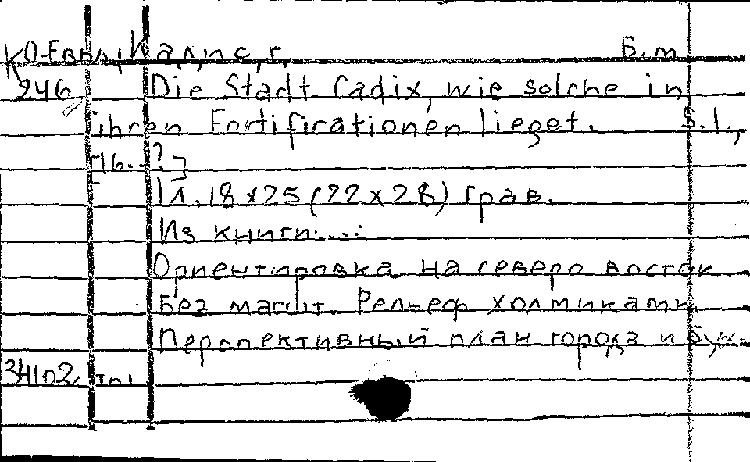 КО-Евр./Кадис, г. Б.м.
246 Die Stadt Cadix, wie solche in
ihren Fortificationen lieget. S.l.,
[16..?]
1 л. 18x25 (22x28) грав.
Из книги....:
Ориентировка на северо восток
Без масшт. Рельеф холмиками.
Перспективный план города и бух-
34102.